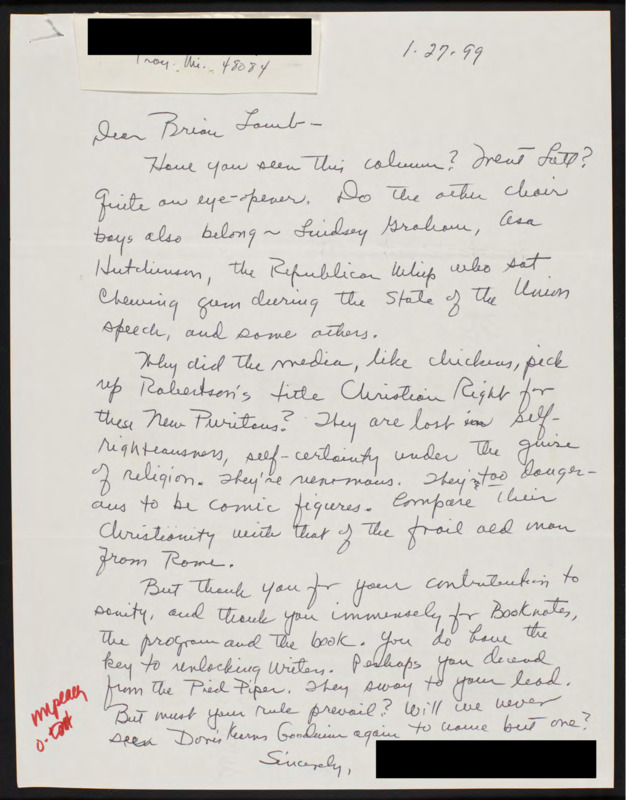 Troy, Mi. 48084
1-27-99
Dear Brian Lamb -
Have you seen this column? Trent Lott?
Quite an eye-opener. Do the other choir
boys also belong ~ Lindsey Graham, Asa
Hutchinson, the Republican Whip who sat
chewing gum during the State of the Union
speech, and some others.
Why did the media, like chickens, pick
up Robertson's title Christian Right for
these New Puritans? They are lost in self-
righteousness, self-certainty under the guise
of religion. They're venomous. They're too danger-
ous to be comic figures. Compare their
Christianity with that of the frail old man
from Rome.
But thank you for your contribution to
sanity, and thank you immensely for Booknotes,
the program and the book. You do have the
key to unlocking writers. Perhaps you descend
from the Pied Piper. They sway to your lead.
But must your rule prevail? Will we never
seen Doris Kearns Goodwin again to name but one?
Sincerely,
impeach